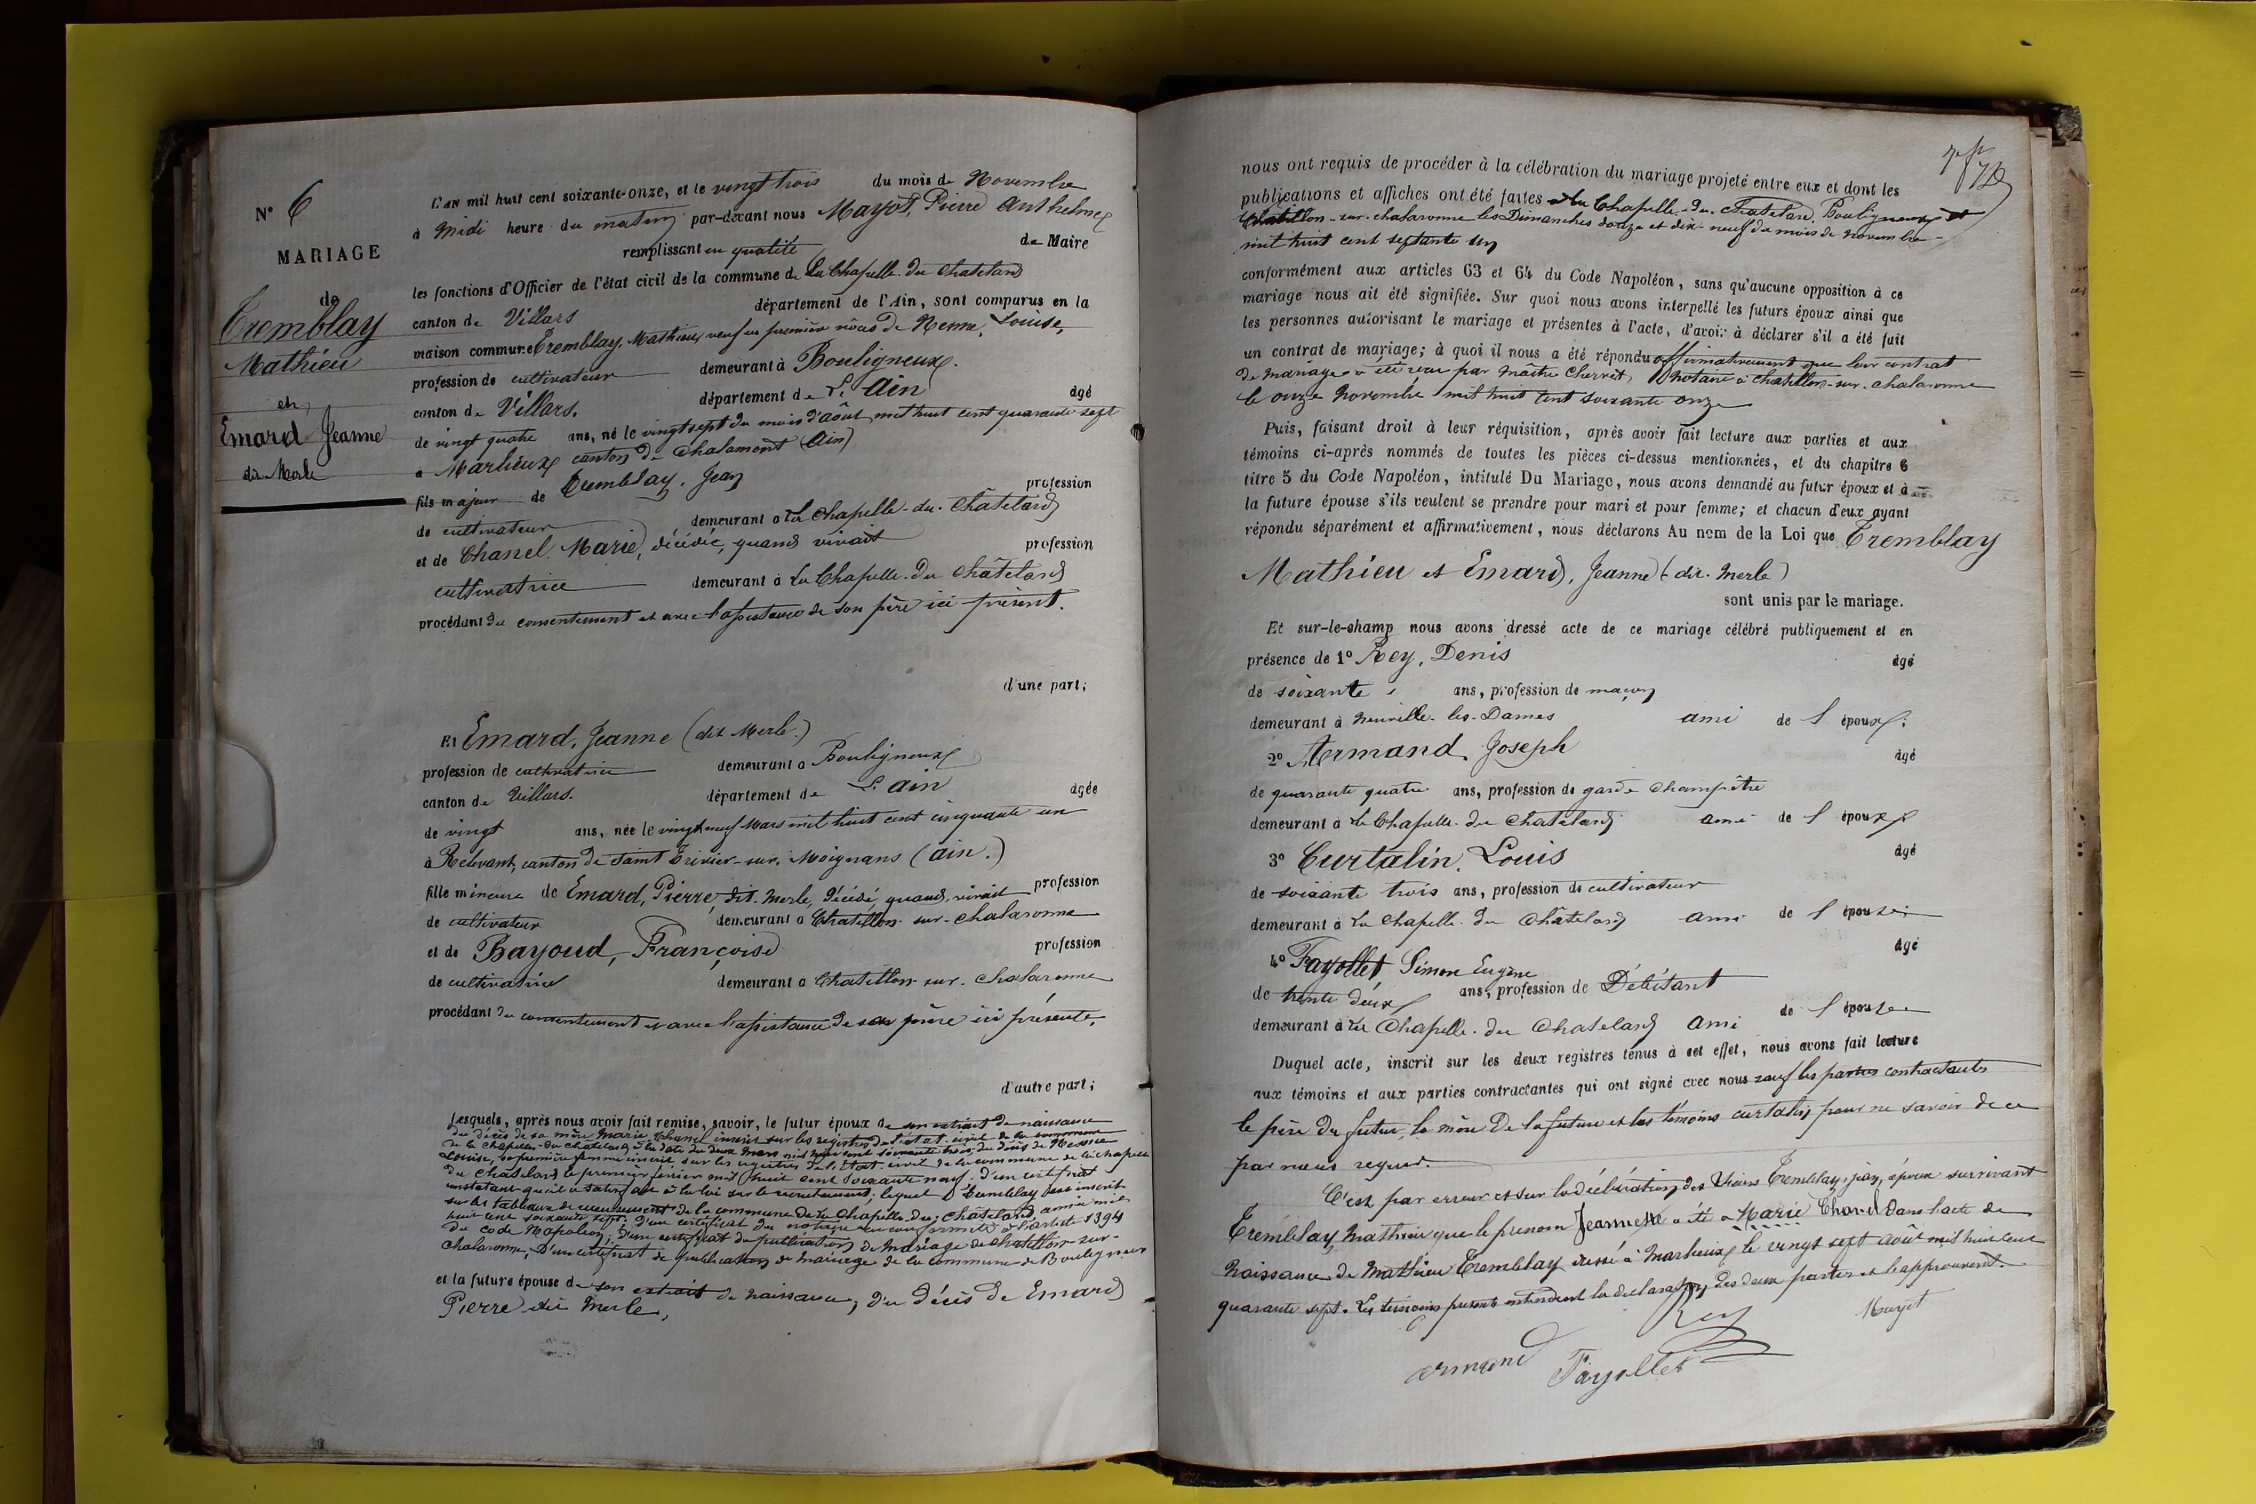 N° 6
MARIAGE
de
Tremblay
Mathieu
et
Emard Jeanne
dit Merle
L'an mil huit cent soixante-onze, et le vingt trois du mois de Novembre
à Midi heure du matin par-devant nous Mayot, Pierre Anthelme
remplissant en qualité de Maire
les fonctions d'Officier de l'état civil de la commune de La Chapelle du Chateland
canton de Villars département de l'Ain, sont comparus en la
maison commune Tremblay, Mathieu veuf en première nôces de Louise,
profession de cultivateur demeurant à Bouligneux.
canton de Villars. département de L'Ain âgé
de vingt quatre ans, né le vingt sept du mois d'août mil huit cent quarante sept
à Marlieux canton de Chalamont (Ain)
fils majeur de Tremblay. Jean profession
de cultivateur demeurant à La Chapelle-du-Châteland
et de Chanel Marie, décédée, quand vivait profession
cultivatrice demeurant à La Chapelle-du Châteland
procédant du consentement et avec l'assistance de son père ici présent.
d'une part;
Et Emard, Jeanne (dit Merle.)
profession de cultivatrice demeurant à Bouligneux
canton de Villars. département de L'Ain âgée
de vingt ans, née le vingt neuf Mars mil huit cent cinquante un
à Relevant, canton de Saint Trivier-sur-Moignans (Ain.)
fille mineure de Emard, Pierre, dit Merle, décédé, quand vivait profession
de cultivateur demeurant à Chatillon-sur-Chalaronne
et de Bayoud, Françoise profession
de cultivatrice demeurant à Chatillon-sur-Chalaronne
procédant du consentement et avec l'assistance de sa mère ici présente.
d'autre part;
Lesquels, après nous avoir fait remise, savoir, le futur époux de son extrait de naissance
du décès de sa mère Marie Chanel inscrit sur les registres de l'état civil de la commune
de la Chapelle-du-Chateland à la date du deux Mars mil huit cent soixante trois; du décès de
Louise, sa première femme inscrit sur les registres de l'état civil de la commune de la Chapelle
du Chateland le premier février mil huit cent soixante neuf; d'un certificat
constatant qu'il a satisfait à la loi sur le recrutement; lequel Tremblay inscrit
sur les tableaux de recensement de la commune de La Chapelle-du-Châteland, année mil
huit cent soixante sept; d'un certificat du notaire en conformité à l'article 1394
du code Napoléon; d'un certificat de publication de Mariage de Chatillon-sur-
Chalaronne, d'un certificat de publication de Mariage de la commune de Bouligneux
et la future épouse de son extrait de naissance, du décès de Emard
Pierre dit Merle,
nous ont requis de procéder à la célébration du mariage projeté entre eux et dont les
publications et affiches ont été faites à La Chapelle-du-Chateland, Bouligneux et
Chatillon-sur-Chalaronne les Dimanches douze et dix-neuf du mois de novembre
mil huit cent septante un
conformément aux articles 63 et 64 du Code Napoléon, sans qu'aucune opposition à ce
mariage nous ait été signifiée. Sur quoi nous avons interpellé les futurs époux ainsi que
les personnes autorisant le mariage et présentes à l'acte, d'avoir à déclarer s'il a été fait
un contrat de mariage; à quoi il nous a été répondu affirmativement que leur contrat
de Mariage a été reçu par Maître Notaire à Chatillon-sur-Chalaronne
le onze Novembre mil huit cent soixante onze
Puis, faisant droit à leur réquisition, après avoir fait lecture aux parties et aux
témoins ci-après nommés de toutes les pièces ci-dessus mentionnées, et du chapitre 6
titre 5 du Code Napoléon, intitulé Du Mariage, nous avons demandé au futur époux et à
la future épouse s'ils veulent se prendre pour mari et pour femme; et chacun d'eux ayant
répondu séparément et affirmativement, nous déclarons Au nom de la Loi que Tremblay
Mathieu et Emard, Jeanne (dit Merle)
sont unis par le mariage.
Et sur-le-champ nous avons dressé acte de ce mariage célébré publiquement et en
présence de 1° Rey, Denis âgé
de soixante ans, profession de maçon
demeurant à Neuville-les-Dames ami de l'époux;
2° Armand Joseph âgé
de quarante quatre ans, profession de garde champêtre
demeurant à La Chapelle-du Chateland ami de l'époux
3° Curtalin, Louis âgé
de soixante trois ans, profession de cultivateur
demeurant à La Chapelle du Châteland ami de l'épouse
4° Fayollet Simon Eugène âgé
de trente deux ans, profession de Débitant
demeurant à La Chapelle-du Chateland ami de l'épouse
Duquel acte, inscrit sur les deux registres tenus à cet effet, nous avons fait lecture
aux témoins et aux parties contractantes qui ont signé avec nous sauf les parties contractantes
le père du futur, la mère de la future et les témoins Curtalin pour ne savoir de ce
par nous requis.
C'est par erreur et sur la déclaration des Tremblay, Jean, époux survivant
Tremblay Mathieu que le prénom Jeannette a été à Marie Chanel dans l'acte de
Naissance de Mathieu Tremblay dressé à Marlieux le vingt sept août mil huit cent
quarante sept. Les témoins présents entendent la déclaration des deux parties et l'approuvent.
Rey
Mayot
Armand
Fayollet